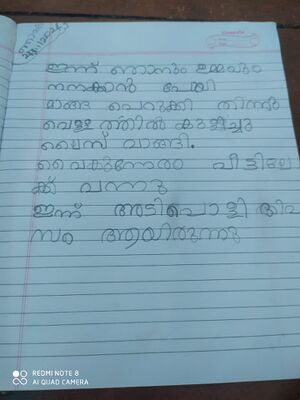 ഇന്ന് ഞാനും ഉമ്മയും
നനക്കാൻ പോയി
മാങ്ങ പെറുക്കി തിന്നു
വെള്ളത്തിൽ കുളിച്ചു
ലൈസ് വാങ്ങി.
വൈകുന്നേരം വീട്ടിലേ
ക്ക് വന്നു
ഇന്ന് അടിപൊളി ദിവ
സം ആയിരുന്നു
REDMI NOTE 8
AI QUAD CAMERA